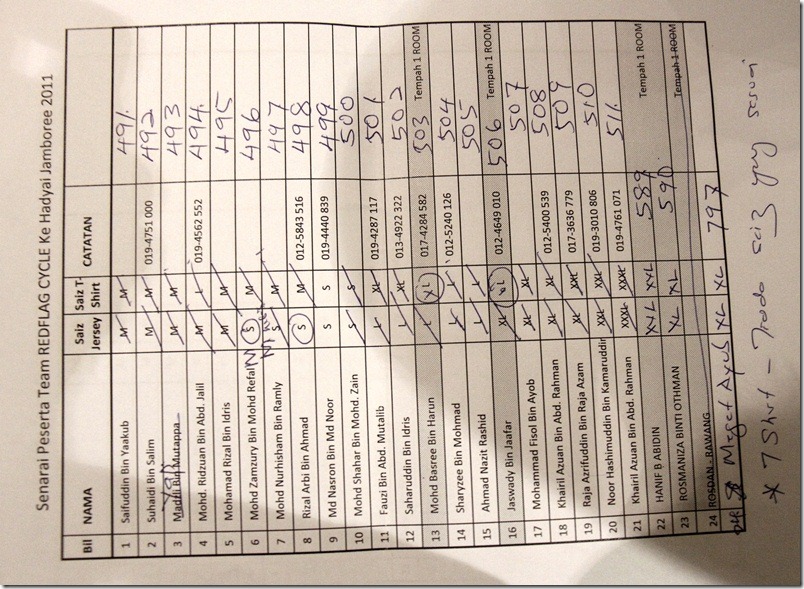 Senarai Peserta Team REDFLAG CYCLE Ke Hadyai Jamboree 2011
Bil NAMA Saiz Jersey Saiz T-Shirt CATATAN
1 Saifuddin Bin Yaakub M M 491
2 Suhaidi Bin Salim M M 019-4751 000 492
3 Madhi Bin Mutappa M M 493
4 Mohd. Ridzuan Bin Abd. Jalil M L 019-4562 552 494
5 Mohamad Rizal Bin Idris M M 495
6 Mohd Zamzury Bin Mohd Refai S M 496
7 Mohd Nurhisham Bin Ramly S M 497
8 Rizal Arbi Bin Ahmad S M 012-5843 516 498
9 Md Nasron Bin Md Noor S S 019-4440 839 499
10 Mohd Shahar Bin Mohd. Zain S S 500
11 Fauzi Bin Abd. Mutalib L XL 019-4287 117 501
12 Saharuddin Bin Idris L XL 013-4922 322 502
13 Mohd Basree Bin Harun L XL 017-4284 582 503 Tempah 1 ROOM
14 Sharyzee Bin Mohmad L L 012-5240 126 504
15 Ahmad Nazit Rashid L L 505
16 Jaswady Bin Jaafar XL XL 012-4649 010 506 Tempah 1 ROOM
17 Mohammad Fisol Bin Ayob XL XL 507
18 Khairil Azuan Bin Abd. Rahman XL XL 012-5400 539 508
19 Raja Azrifuddin Bin Raja Azam XL XXL 017-3636 779 509
20 Noor Hashimuddin Bin Kamaruddin XXL XXL 019-3010 806 510
21 Khairil Azuan Bin Abd. Rahman XXXL XXXL 019-4761 071 511
22 HANIF B ABIDIN XXL XXL 589 Tempah 1 ROOM
23 ROSMANIZA BINTI OTHMAN XL XL 590
24 ROSDAN - RAWANG Tempah 1 ROOM
Megat Ayub XL XL 797
* T Shirt - Trada saiz yang sesuai